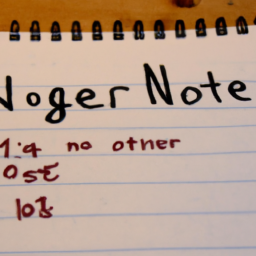 Noger Note
1:4 no other
OSE
10